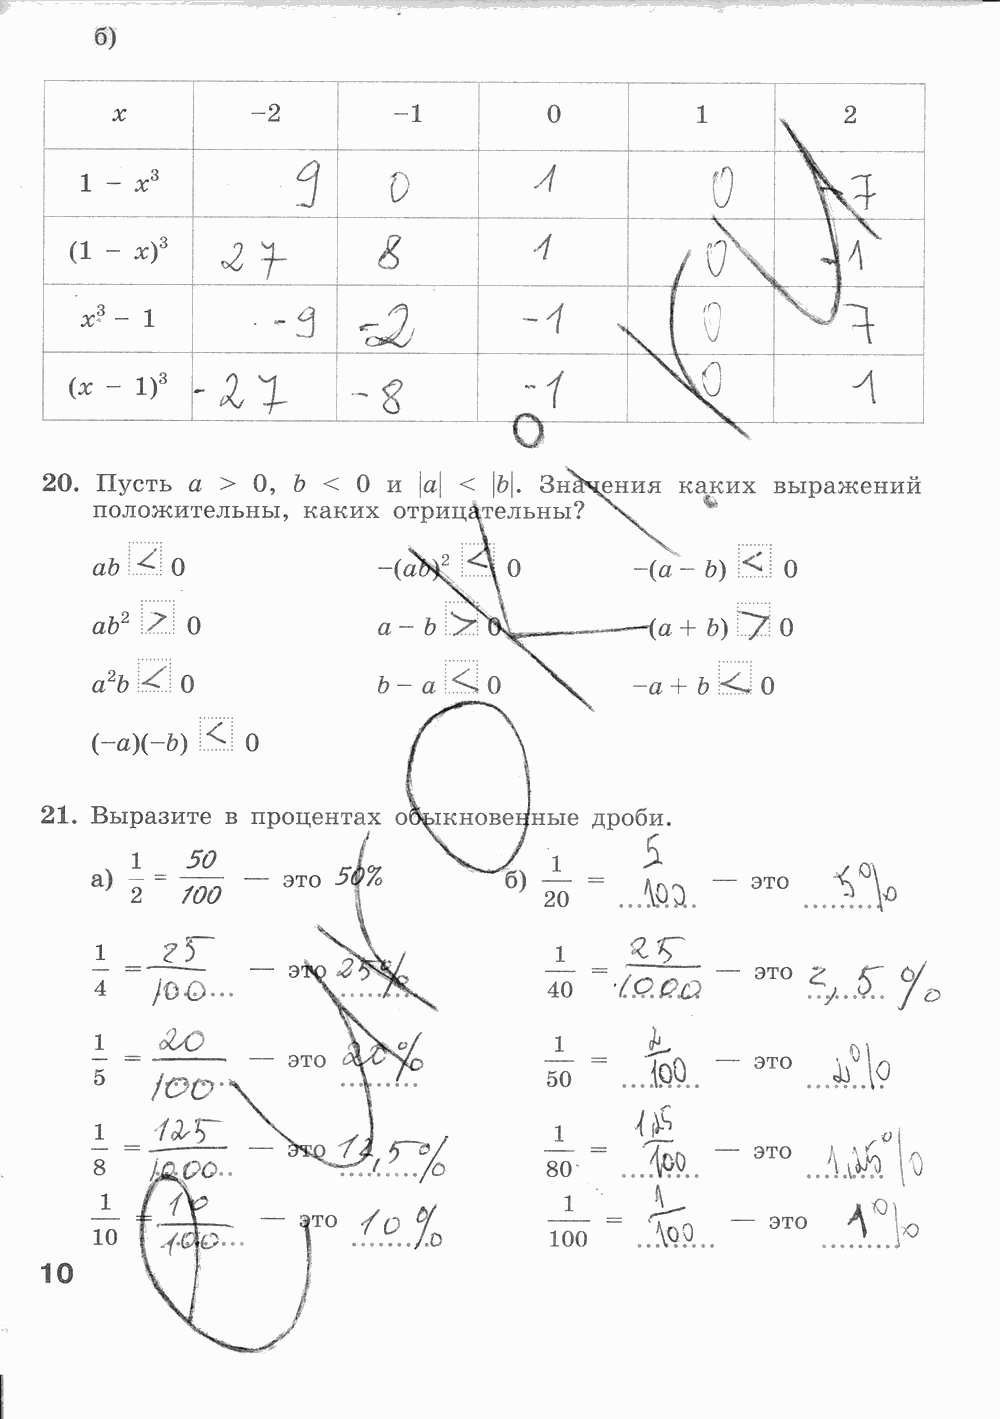 б)
x −2 −1 0 1 2
1 − x³ 9 0 1 0 -7
(1 − x)³ 27 8 1 0 -1
x³ − 1 -9 -2 -1 0 7
(x − 1)³ -27 -8 -1 0 1
20. Пусть a > 0, b < 0 и |a| < |b|. Значения каких выражений
положительны, каких отрицательны?
ab < 0 −(ab)² < 0 −(a − b) < 0
ab² > 0 a − b > 0 −(a + b) > 0
a²b < 0 b − a < 0 −a + b < 0
(−a)(−b) < 0
21. Выразите в процентах обыкновенные дроби.
а) 1/2 = 50/100 — это 50% б) 1/20 = 5/100 — это 5%
1/4 = 25/100 — это 25% 1/40 = 25/1000 — это 2,5%
1/5 = 20/100 — это 20% 1/50 = 2/100 — это 2%
1/8 = 125/1000 — это 12,5% 1/80 = 1,25/100 — это 1,25%
1/10 = 10/100 — это 10% 1/100 = 1/100 — это 1%
10